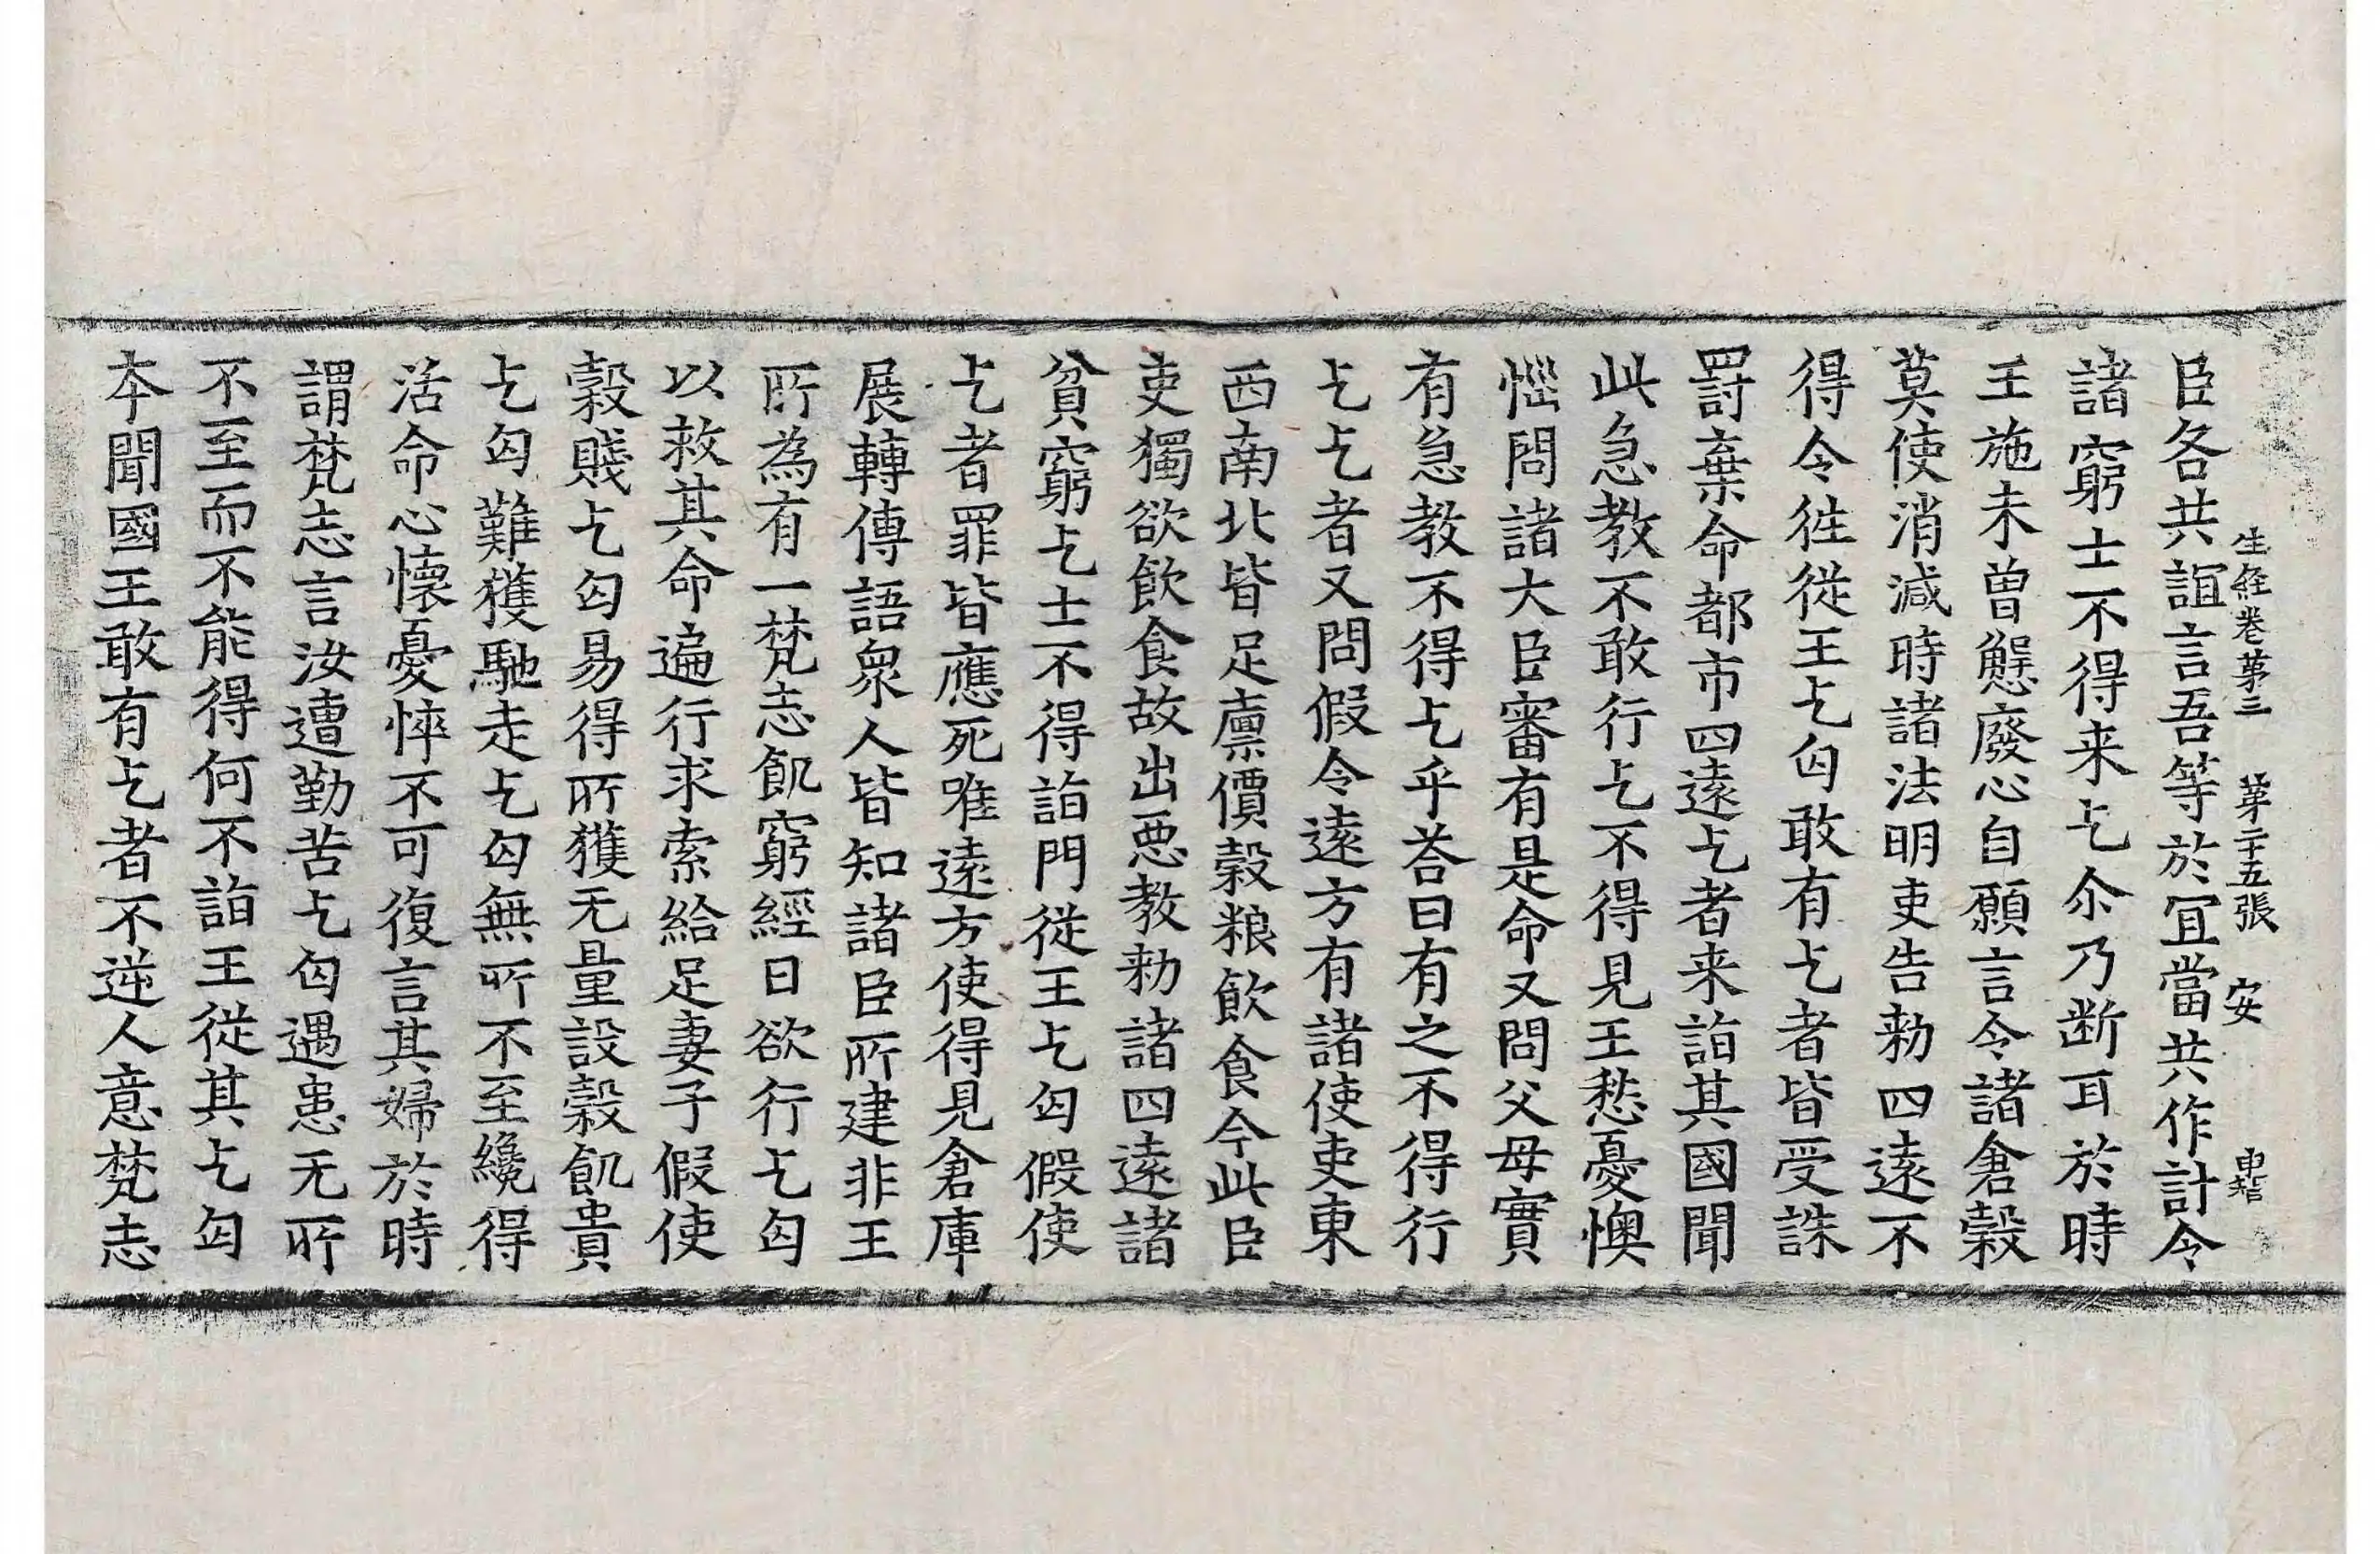 臣各共誼言吾等於冝當共作計令
生經卷第三　第二十五張　安　中㨗
諸窮士不得来乞尒乃断耳於時
王施未曾懈廢心自願言令諸倉穀
莫使消減時諸法明吏告勑四遠不
得令徃従王乞匃敢有乞者皆受誅
罰棄命都市四遠乞者来詣其國聞
此急教不敢行乞不得見王愁憂懊
惱問諸大臣審有是命又問父母實
有急教不得乞乎荅曰有之不得行
乞乞者又問假令遠方有諸使吏東
西南北皆足廪價穀粮飲食今此臣
吏獨欲飲食故出惡教勑諸四遠諸
貧窮乞士不得詣門従王乞匃假使
乞者罪皆應死唯遠方使得見倉庫
展轉傳語衆人皆知諸臣所建非王
所為有一梵志飢窮經日欲行乞匃
以救其命遍行求索給足妻子假使
穀賤乞匃易得所獲无量設穀飢貴
乞匃難獲馳走乞匃無所不至纔得
活命心懷憂悴不可復言其婦於時
謂梵志言汝遭勤苦乞匃遇患无所
不至而不能得何不詣王従其乞匃
本聞國王敢有乞者不逆人意梵志